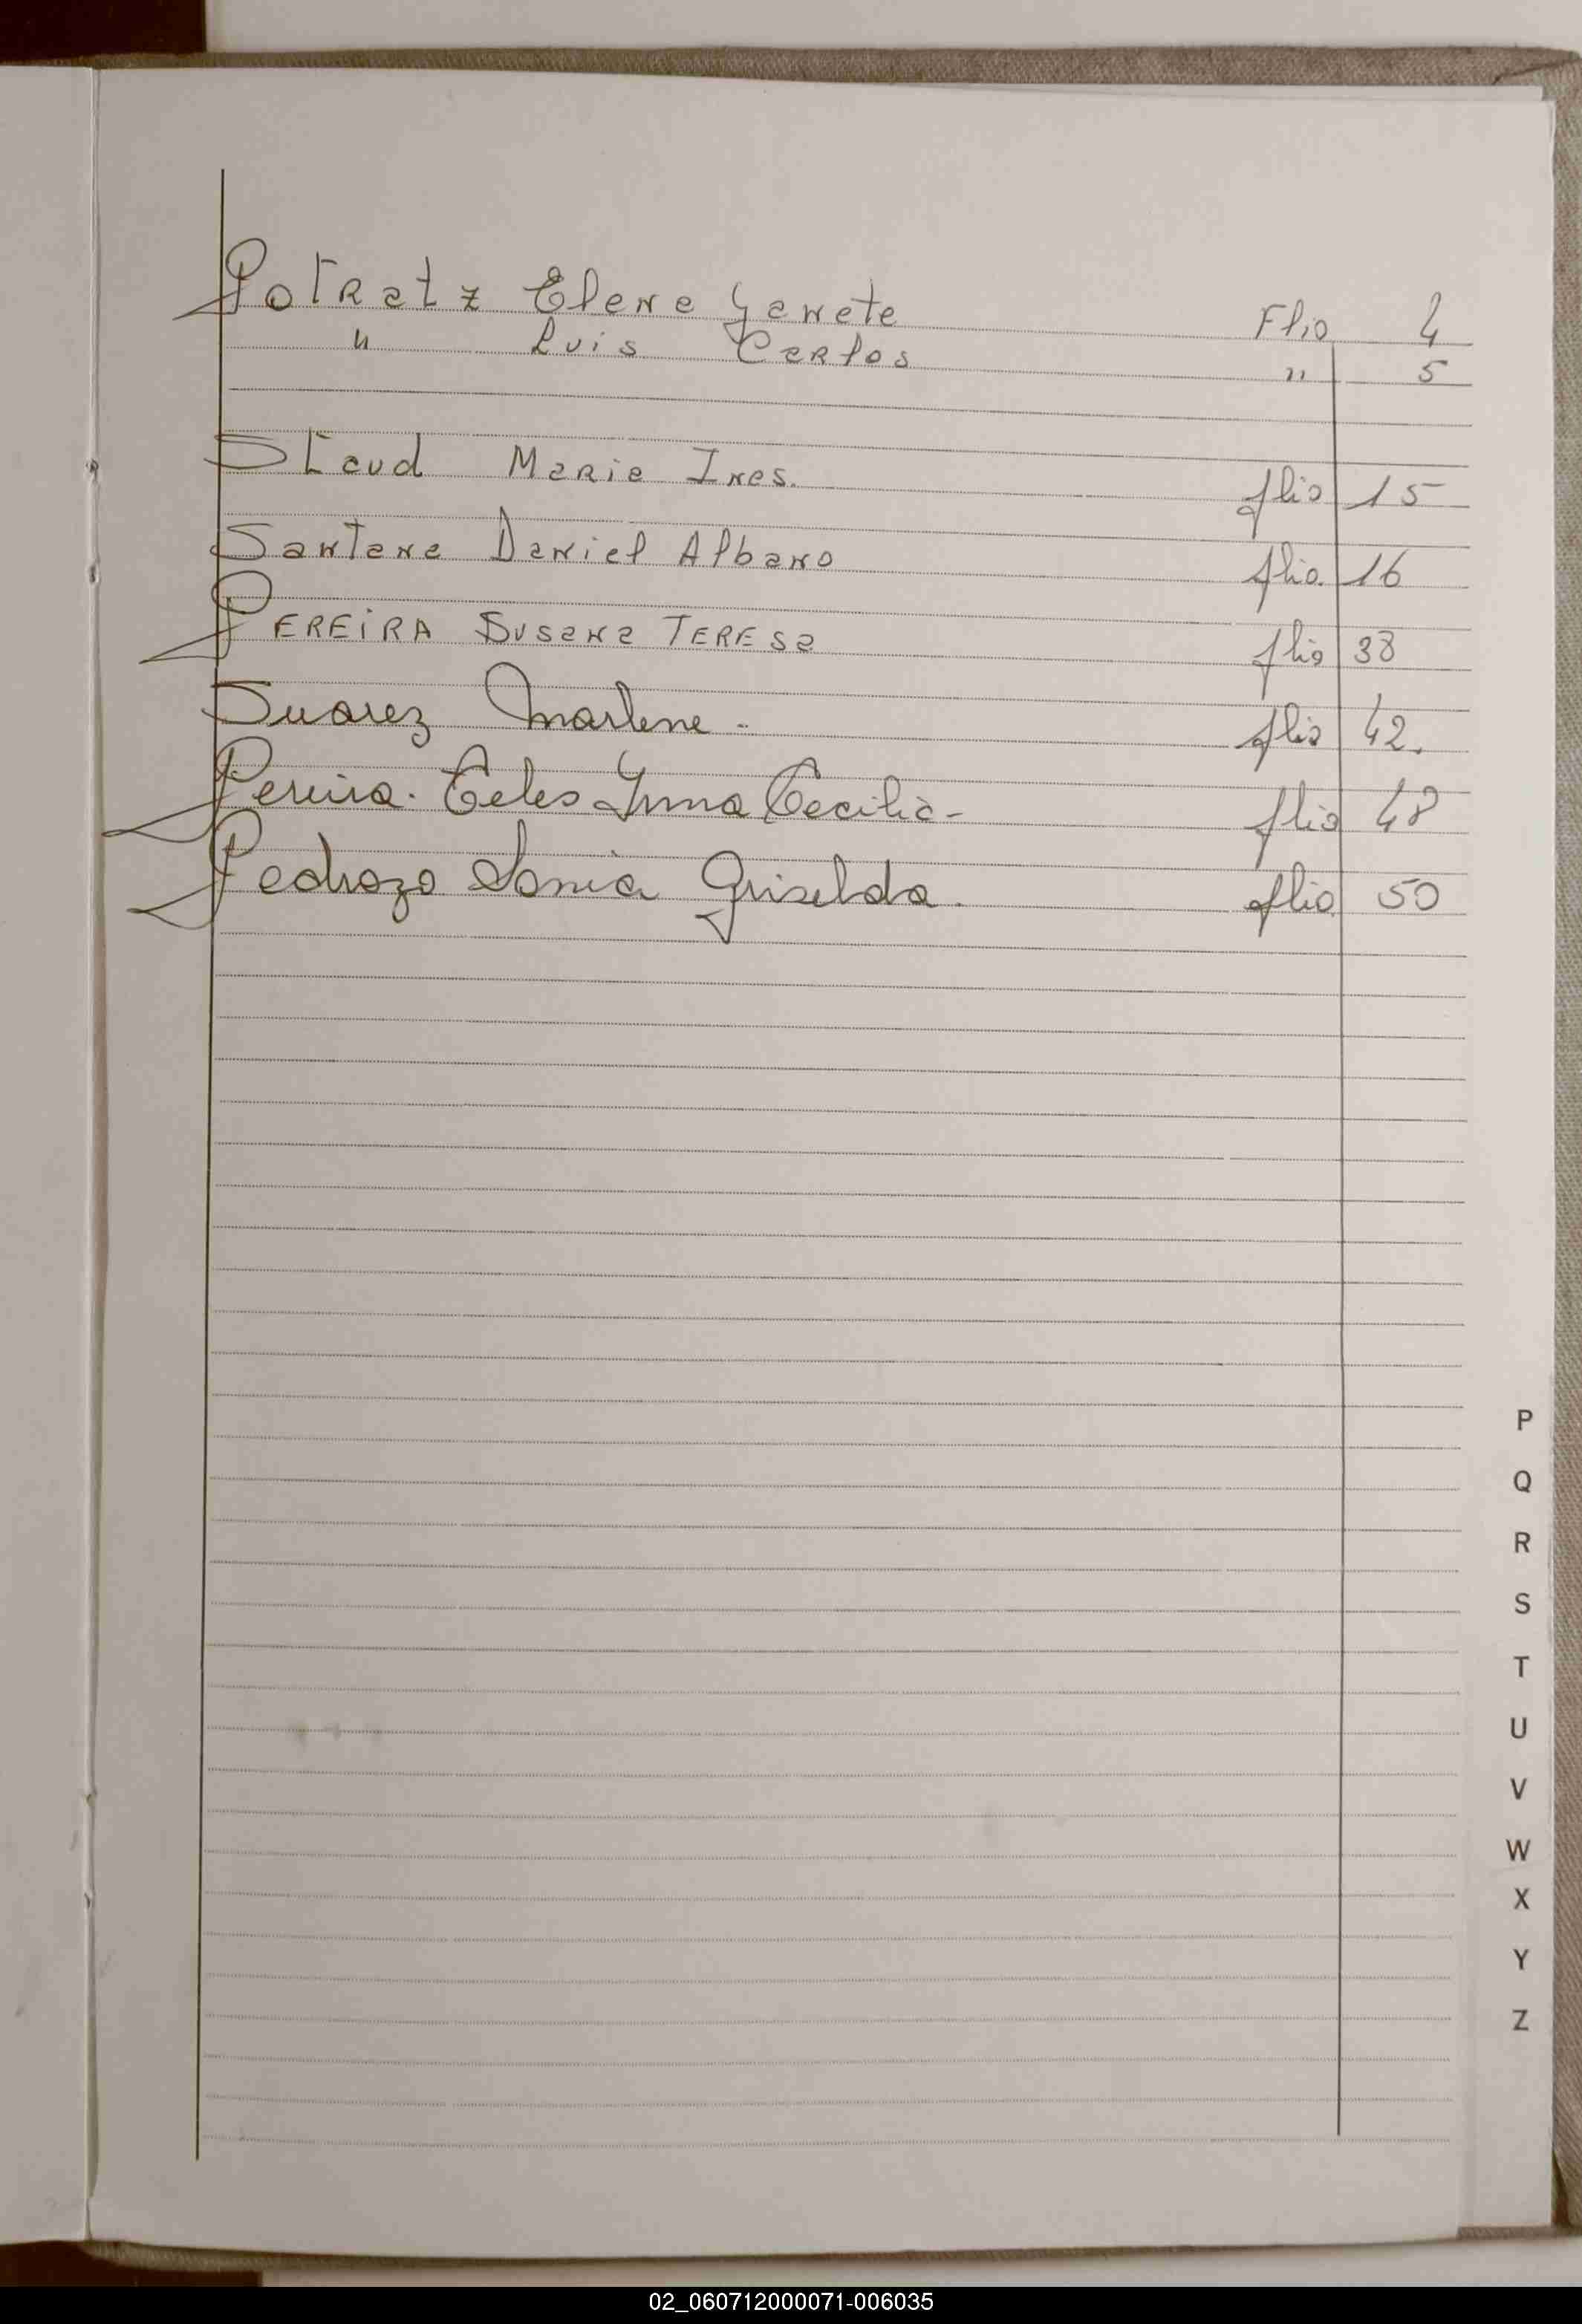 Potratz Elena Yanete Flio 4
" Luis Carlos " 5
Staud Maria Ines. flio 15
Santana Daniel Albano flio. 16
PEREIRA Susana TERESa flio 38
Suarez Marlene - flio 42.
Pereira. Teles Inma Cecilia- flio 48
Pedrozo Sonia Griselda. flio 50
P
Q
R
S
T
U
V
W
X
Y
Z
02_060712000071-006035